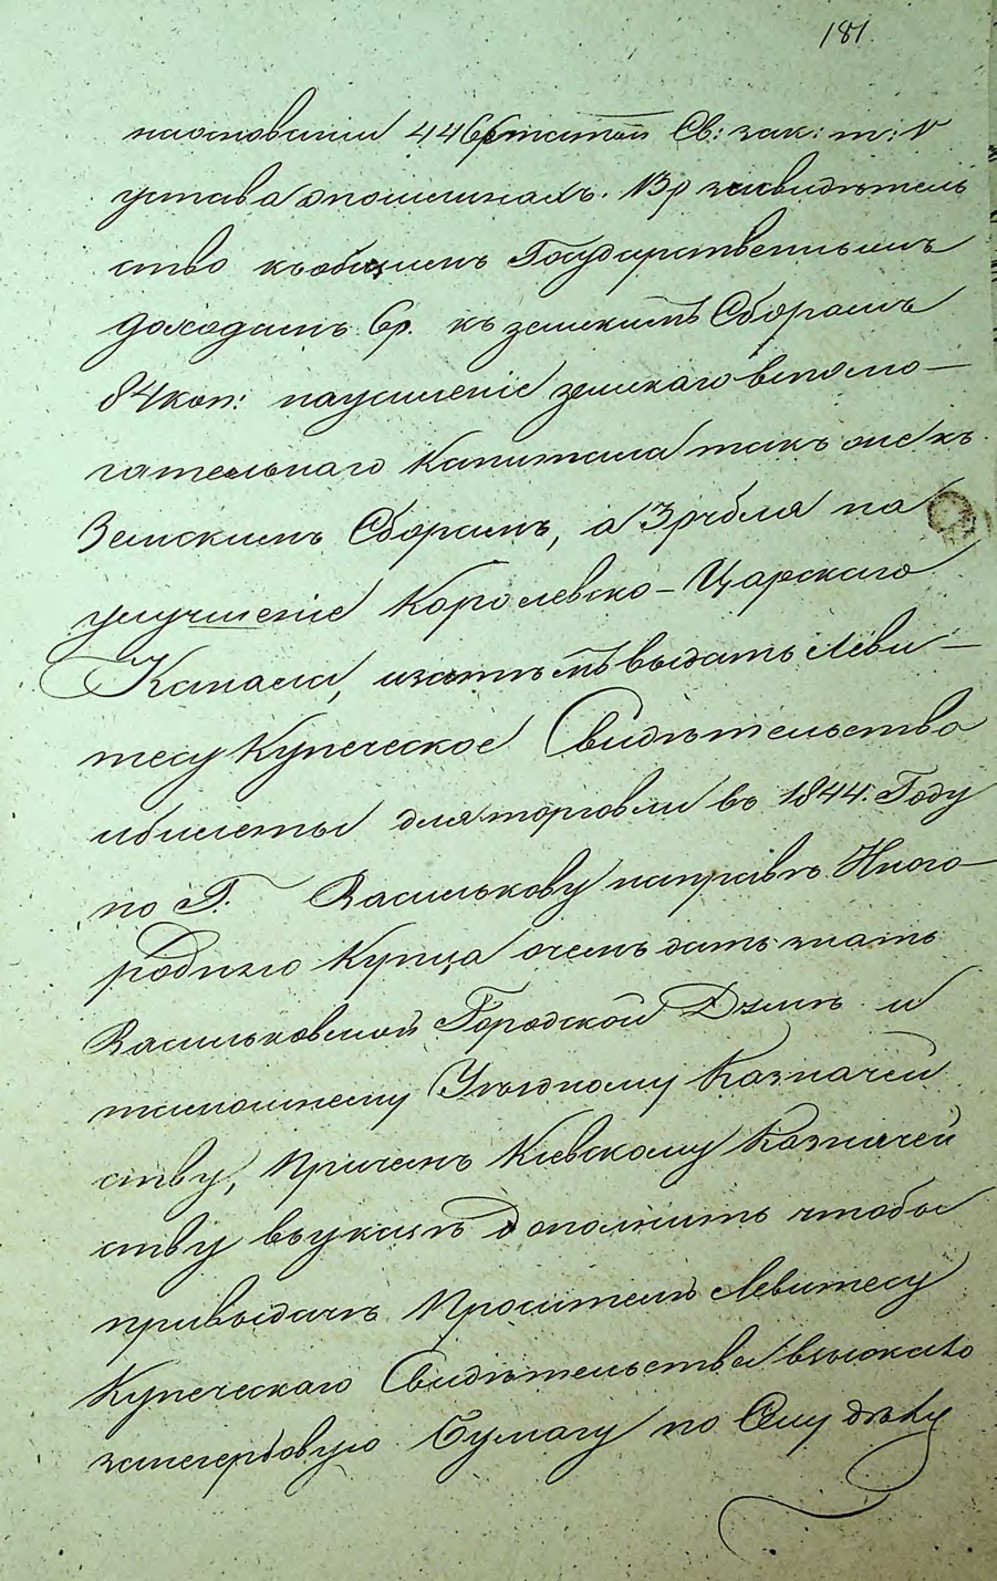 181.
наосновании 446 статьи Св: зак: т: V
устава опошлинахъ. 13р засвидѣтель
ство къобщимъ Государственнымъ
доходамъ 6р. къ земскимъ Сборамъ
84 коп: наусиленіе земскаго вспомо—
гательнаго Капитала такъ же къ
Земскимъ Сборамъ, а 3 рубля на
улучшеніе Королевско-Царскаго
Канала, изатѣмъ выдать Леви—
тесу Купеческое Свидѣтельство
ибилеты дляторговли въ 1844. Году
по Г. Василькову направѣ Иного—
родняго Купца очемъ дать знать
Васильковской Городской Думѣ и
тамошнему Уѣздному Казначей
ству, Причемъ Кіевскому Казначей
ству въуказѣ дополнить чтобы
привыдачѣ Просителю Левитесу
Купеческаго Свидѣтельства взыскало
загербовую Бумагу по Сему дѣлу